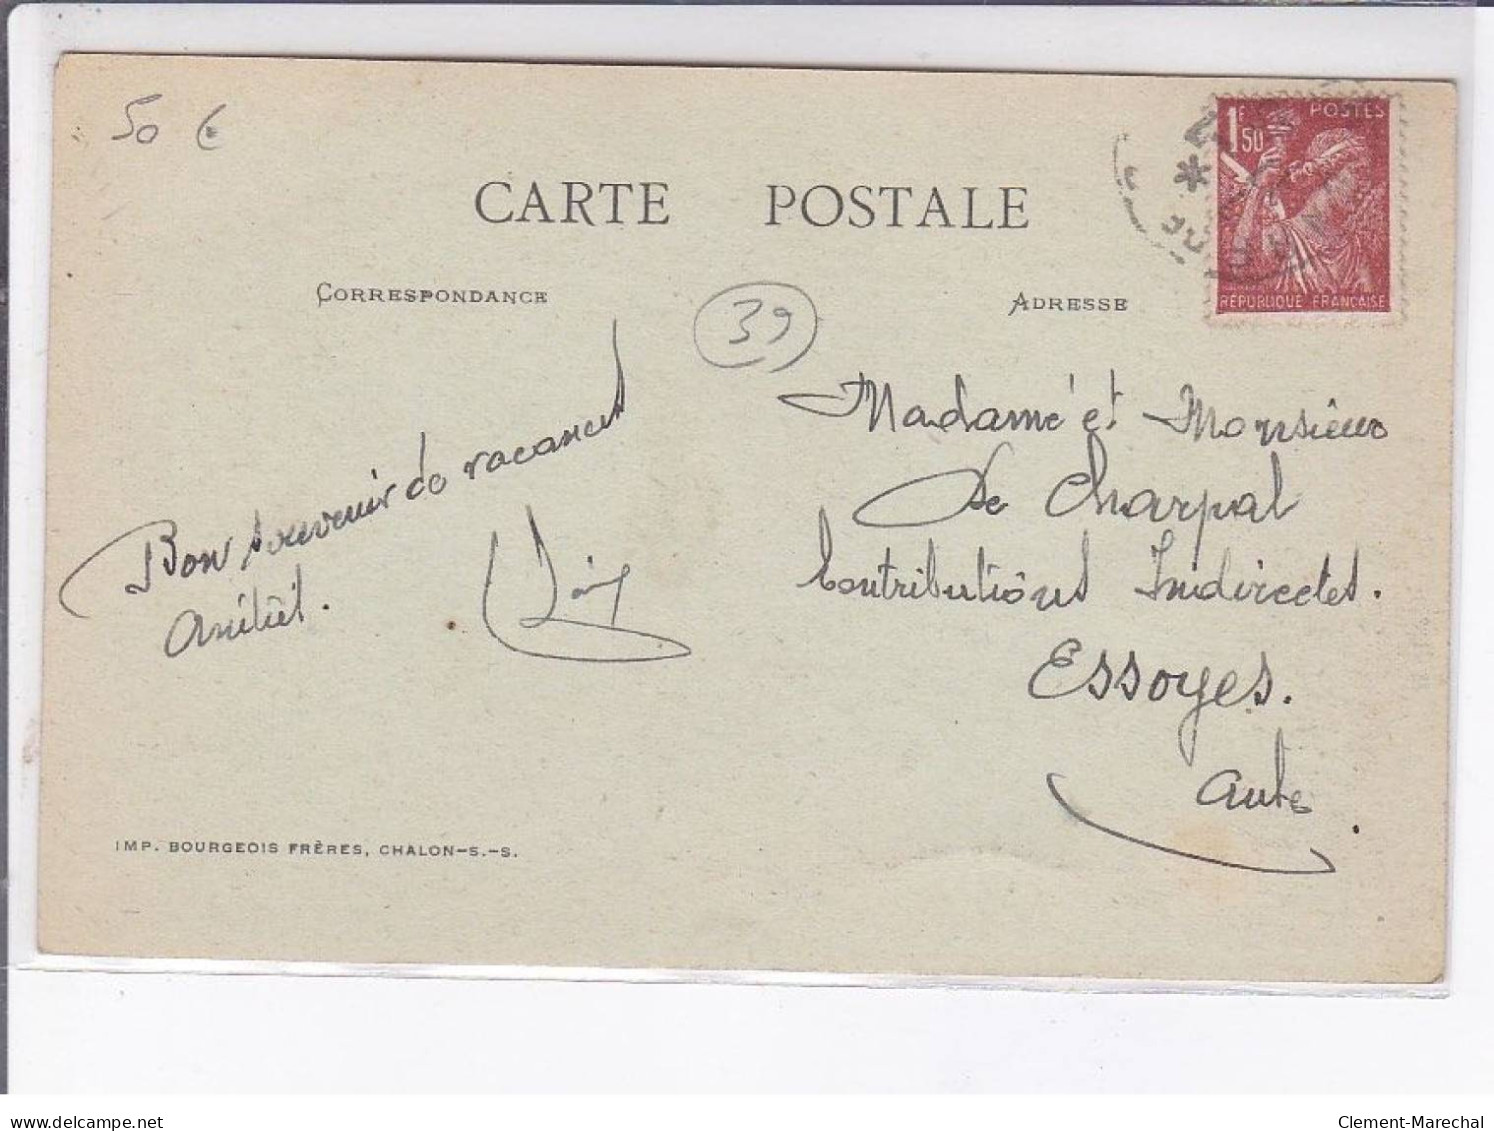 50 €
1F 50
POSTES
RÉPUBLIQUE FRANÇAISE
CARTE POSTALE
CORRESPONDANCE
39
ADRESSE
Bon souvenir de vacances
Amitiés.
Madame et Monsieur
de Charpal
Contributions Indirectes.
Essoyes.
Aube.
IMP. BOURGEOIS FRÈRES, CHALON-S.-S.
www.delcampe.net
Clement-Marechal